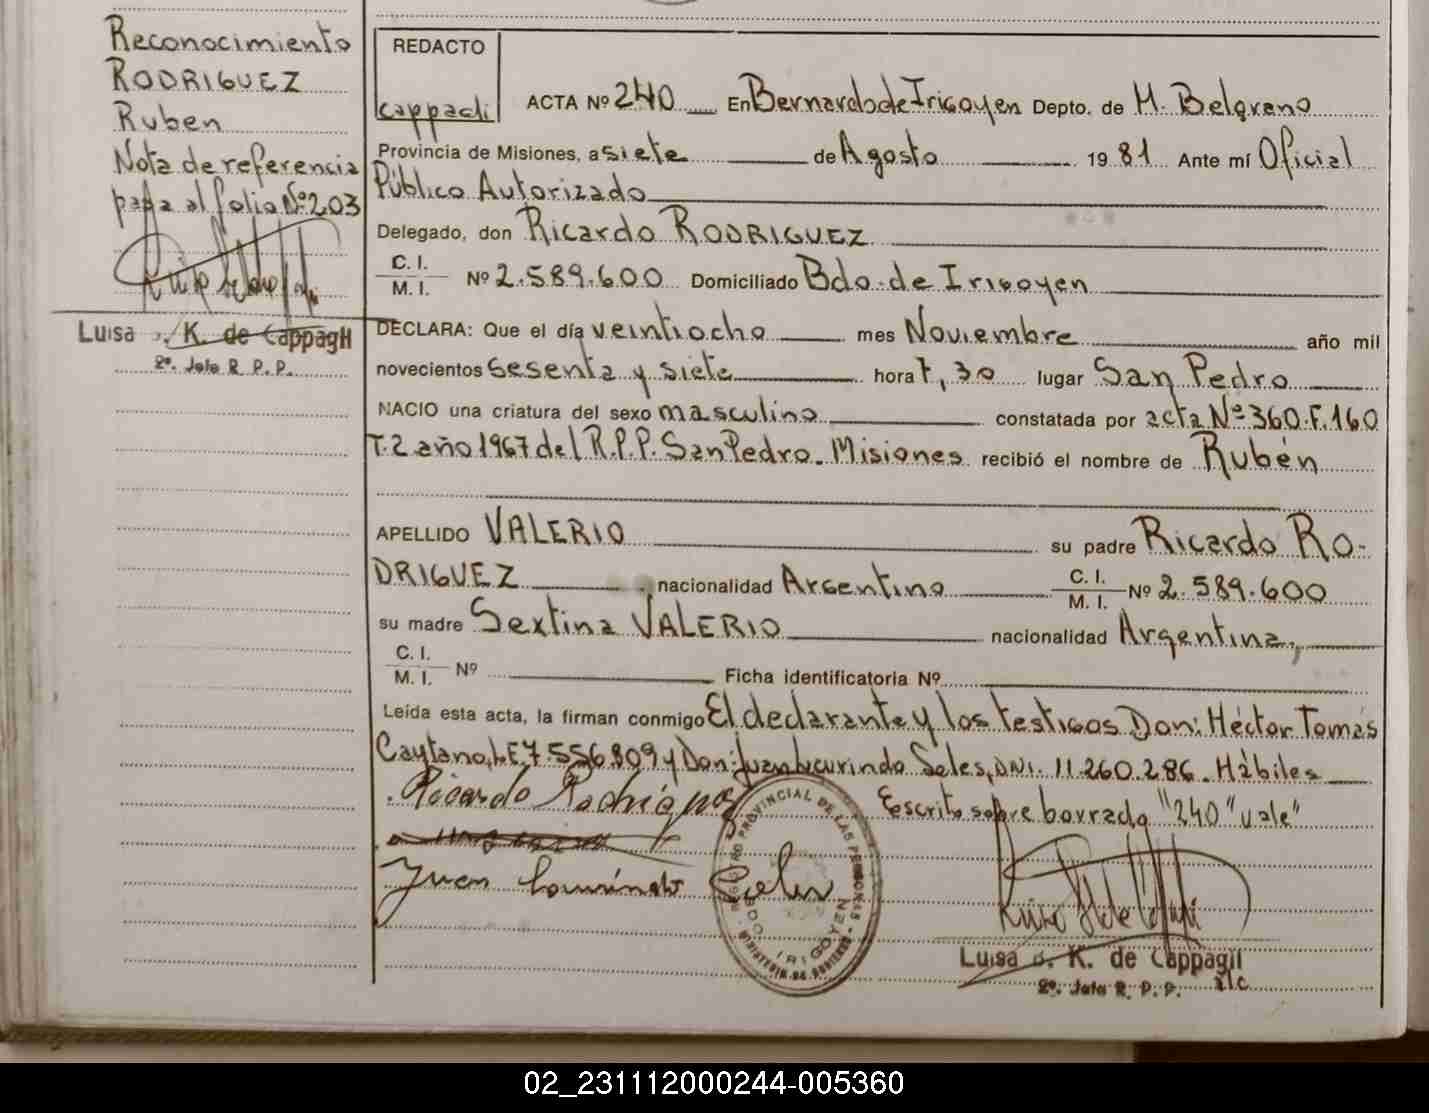 Reconocimiento
RODRIGUEZ
Ruben
Nota de referencia
pasa al folio Nº 203
Luisa K. de Cappagli
2º. Jefe R. P. P.
REDACTO
Cappagli
ACTA Nº 240 En Bernardo de Irigoyen Depto. de M. Belgrano
Provincia de Misiones, a siete de Agosto 19 81 Ante mí Oficial
Público Autorizado
Delegado, don Ricardo RODRIGUEZ
C. I.
M. I. Nº 2.589.600 Domiciliado Bdo. de Irigoyen
DECLARA: Que el día veintiocho mes Noviembre año mil
novecientos sesenta y siete hora 7,30 lugar San Pedro
NACIO una criatura del sexo masculino constatada por acta Nº 360.F.160
T.2 año 1967 del R.P.P. San Pedro. Misiones recibió el nombre de Rubén
APELLIDO VALERIO su padre Ricardo RO-
DRIGUEZ nacionalidad Argentino C. I. M. I. Nº 2.589.600
su madre Sextina VALERIO nacionalidad Argentina,
C. I.
M. I. Nº Ficha identificatoria Nº
Leída esta acta, la firman conmigo El declarante y los testigos Don: Héctor Tomás
Caytano, L.E. 7.556.809 y Don: Juan Lucurindo Seles, DNI. 11.260.286. Hábiles
Ricardo Rodriguez Escrito sobre borrado "240" vale"
Juan
REGISTRO PROVINCIAL DE LAS PERSONAS
BDO. IRIGOYEN
MINISTERIO DE GOBIERNO
Luisa K. de Cappagli
2º. Jefe R. P. P. a/c
02_231112000244-005360